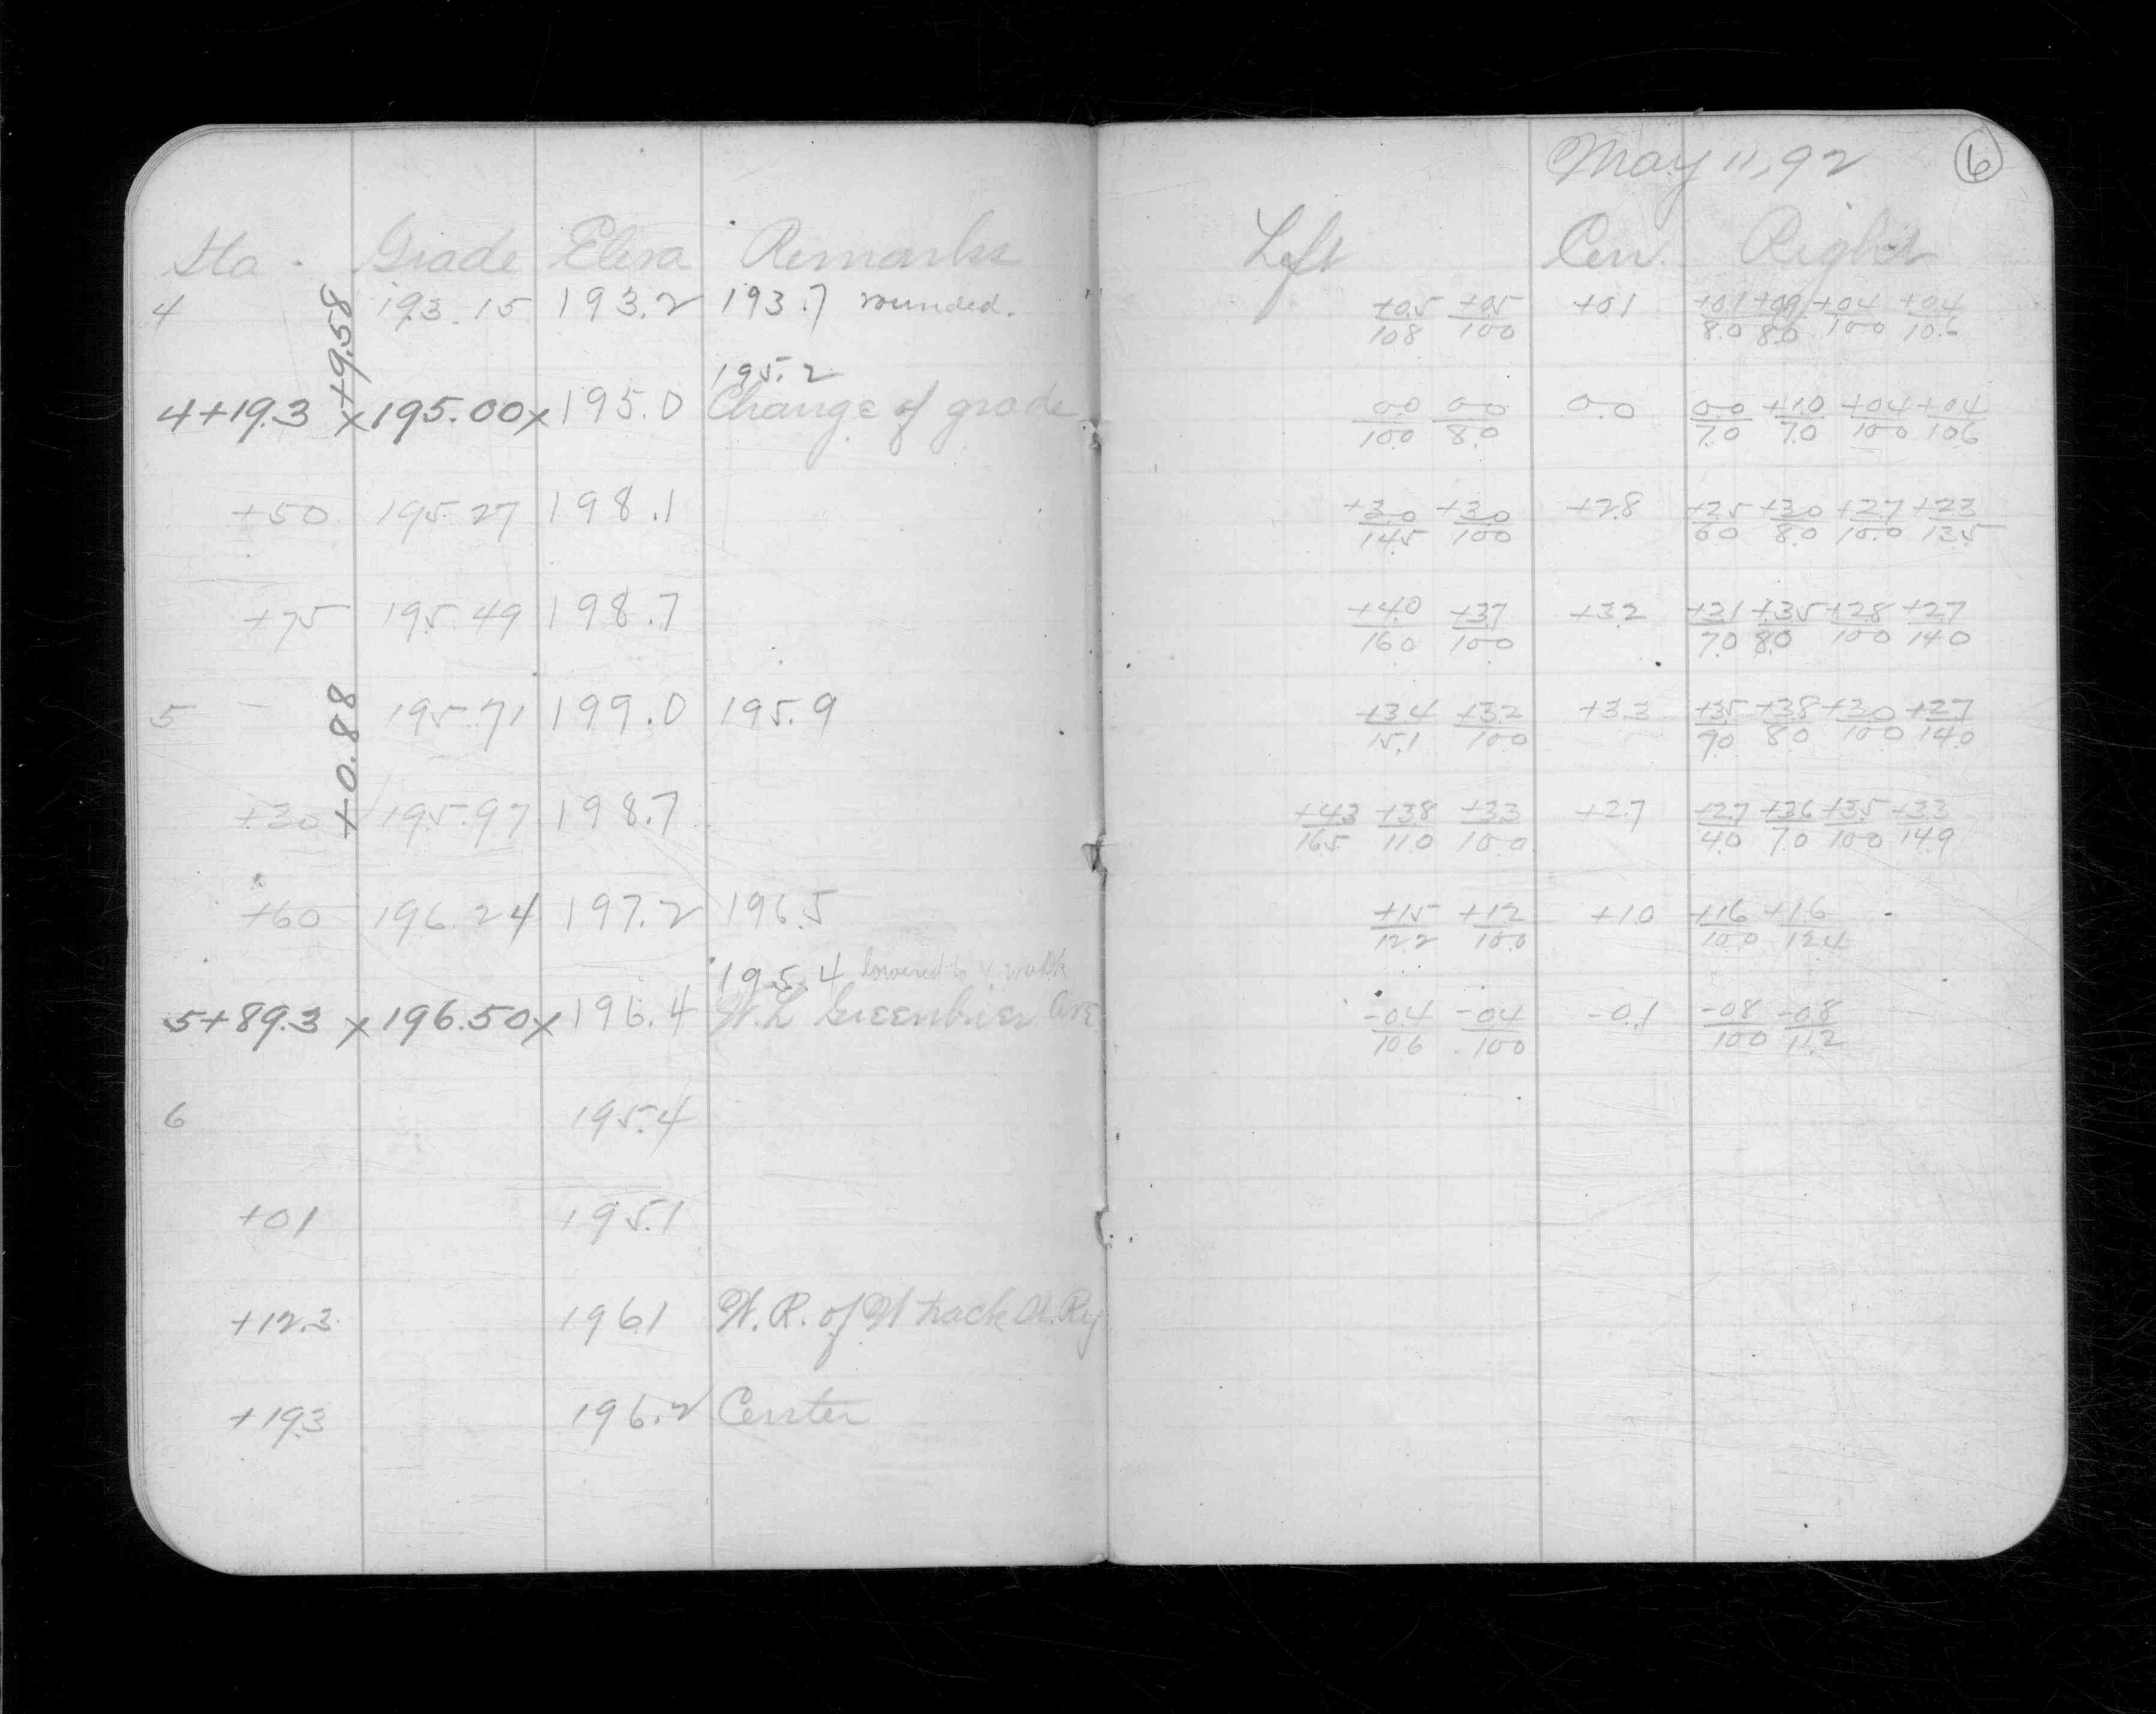 May 11, 92 6
Sta. Grade Eleva Remarks Left Cen. Right
4 193.15 193.2 193.7 rounded. +0.5/10.8 +0.5/10.0 +0.1 +0.1/8.0 +0.9/8.0 +0.4/10.0 +0.4/10.6
+9.58
195.2
4+19.3 x 195.00 x 195.0 Change of grade 0.0/10.0 0.0/8.0 0.0 0.0/7.0 +1.0/7.0 +0.4/10.0 +0.4/10.6
+50 195.27 198.1 +3.0/14.5 +3.0/10.0 +2.8 +2.5/6.0 +3.0/8.0 +2.7/10.0 +2.3/13.5
+75 195.49 198.7 +4.0/16.0 +3.7/10.0 +3.2 +3.1/7.0 +3.5/8.0 +2.8/10.0 +2.7/14.0
5 195.71 199.0 195.9 +3.4/15.1 +3.2/10.0 +3.3 +3.5/9.0 +3.8/8.0 +3.0/10.0 +2.7/14.0
+0.88
+30 195.97 198.7 +4.3/16.5 +3.8/11.0 +3.3/10.0 +2.7 +2.7/4.0 +3.6/7.0 +3.5/10.0 +3.3/14.9
+60 196.24 197.2 196.5 +1.5/12.2 +1.2/10.0 +1.0 +1.6/10.0 +1.6/12.4
195.4 lowered to
5+89.3 x 196.50 x 196.4 W.L Greenbrier Ave -0.4/10.6 -0.4/10.0 -0.1 -0.8/10.0 -0.8/11.2
6 195.4
+01 195.1
+12.3 196.1 W. R. of W track Ry
+19.3 196.2 Center